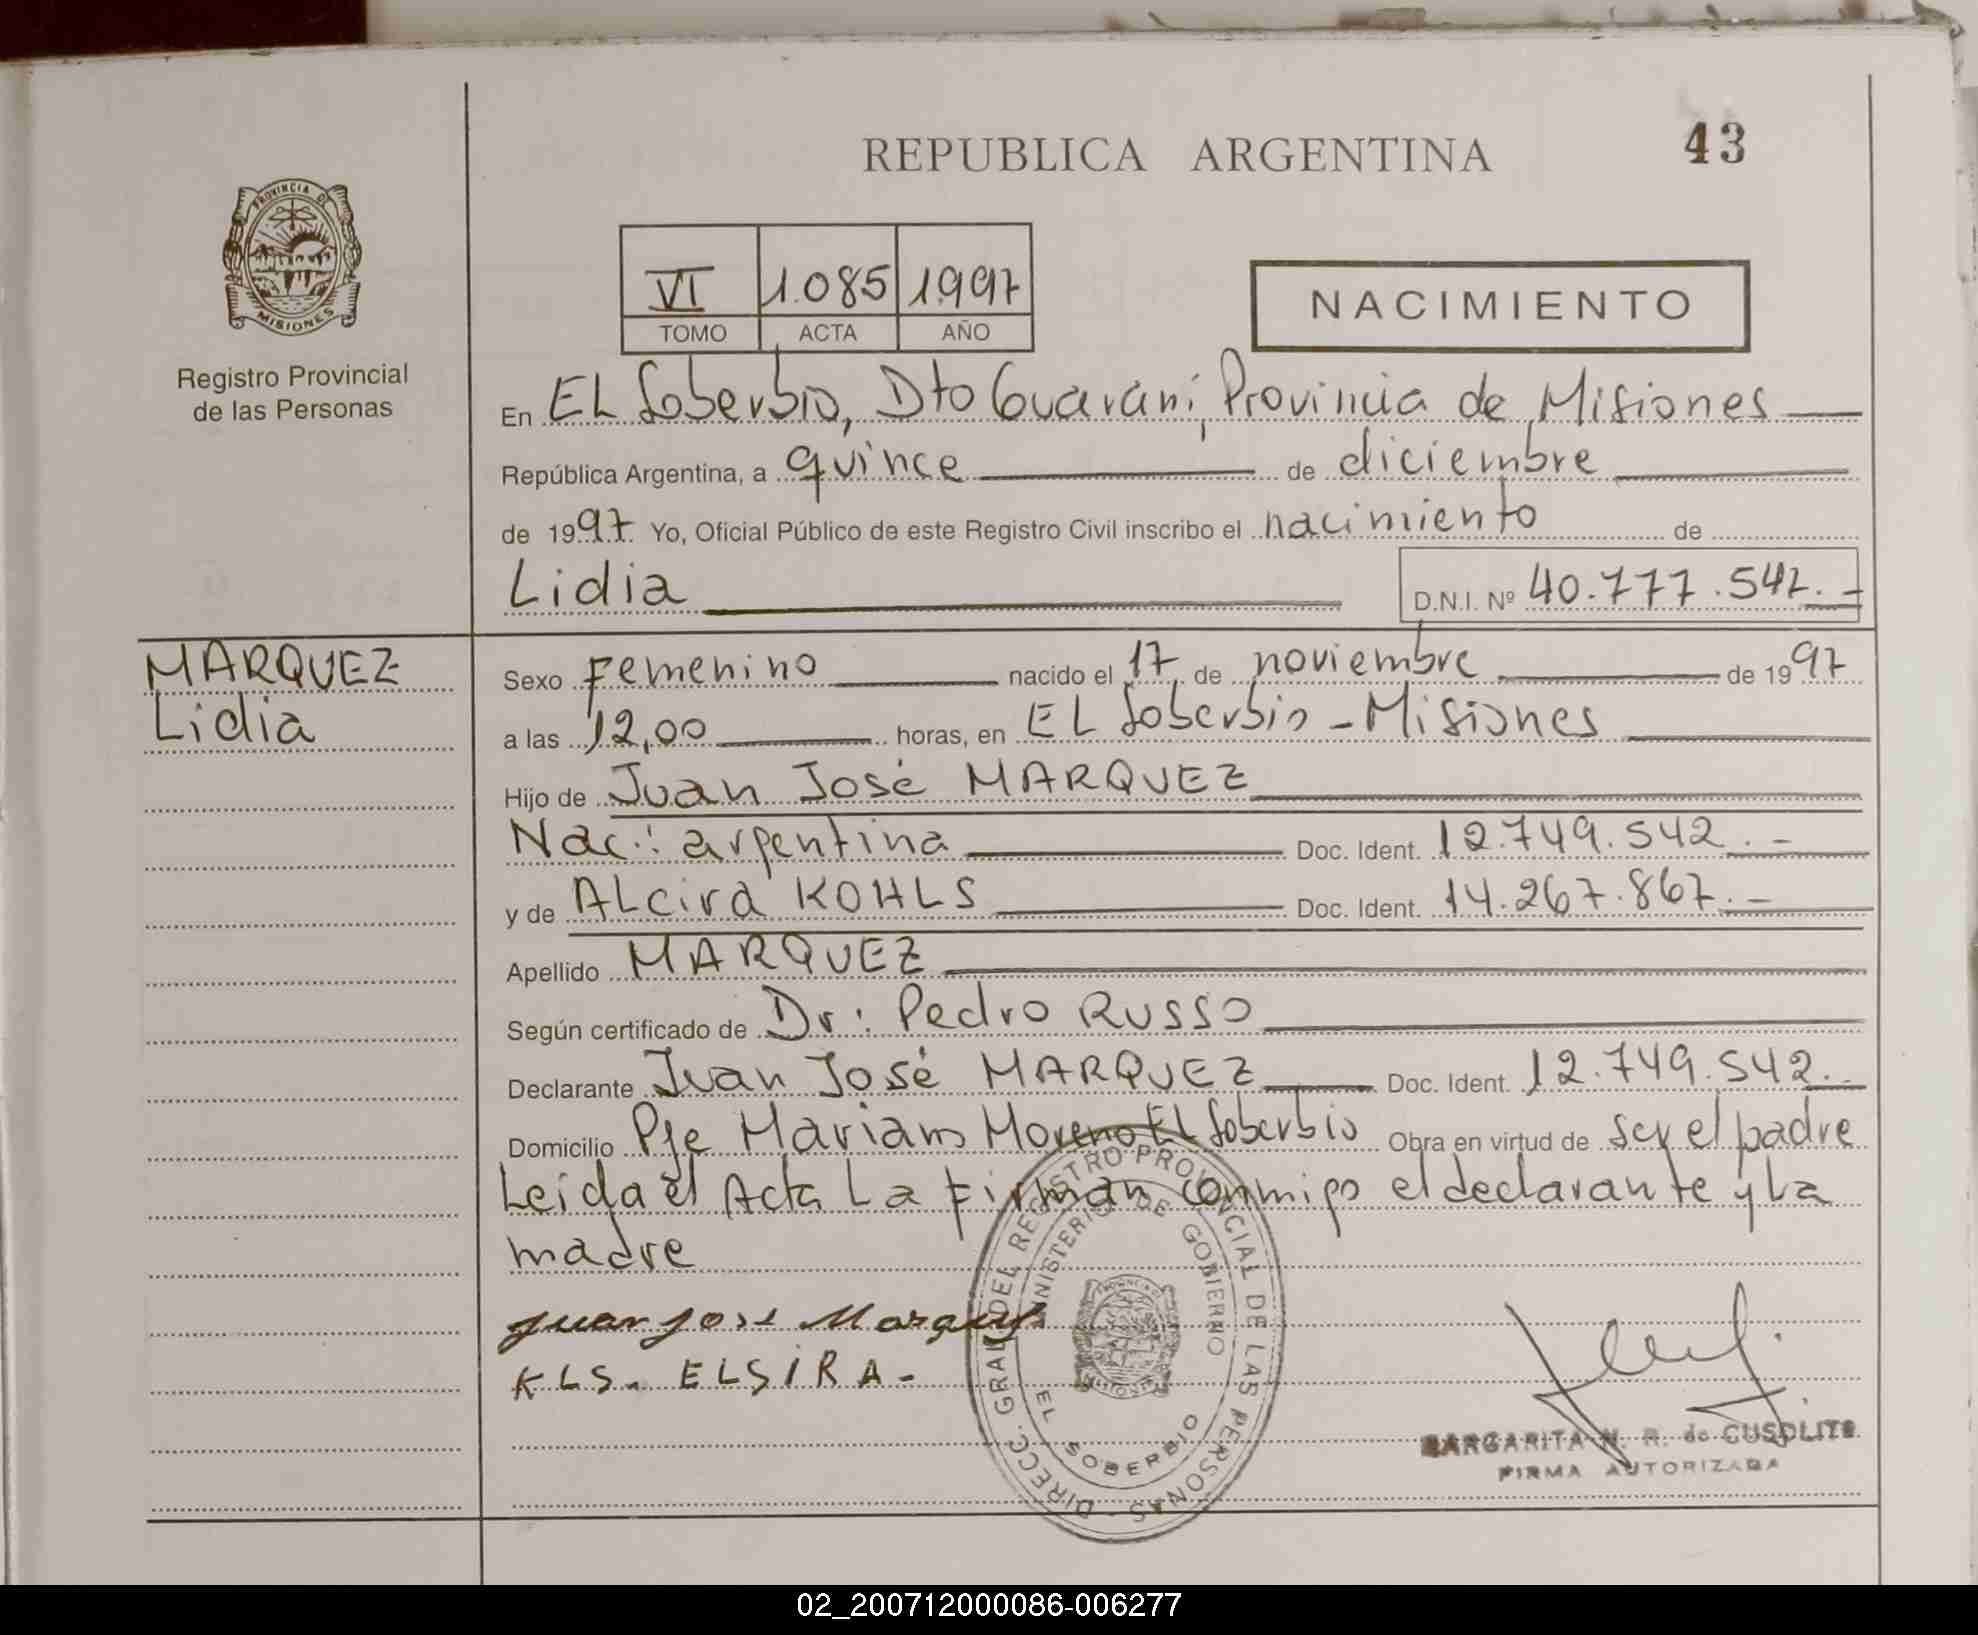 REPUBLICA ARGENTINA
43
PROVINCIA DE
MISIONES
Registro Provincial
de las Personas
VI 1.085 1.997
TOMO ACTA AÑO
NACIMIENTO
En EL Soberbio, Dto Guaraní, Provincia de Misiones
República Argentina, a quince de diciembre
de 1997 Yo, Oficial Público de este Registro Civil inscribo el nacimiento de
Lidia D.N.I. Nº 40.777.542.-
MARQUEZ
Lidia
Sexo Femenino nacido el 17 de noviembre de 1997
a las 12,00 horas, en EL Soberbio - Misiones
Hijo de Juan José MARQUEZ
Nac.: argentina Doc. Ident. 12.749.542.-
y de ALcira KOHLS Doc. Ident. 14.267.867.-
Apellido MARQUEZ
Según certificado de Dr: Pedro RUSSO
Declarante Juan José MARQUEZ Doc. Ident. 12.749.542.-
Domicilio Pje Mariano Moreno EL Soberbio Obra en virtud de ser el padre
Leida el Acta La Firman conmigo el declarante y La
madre
Juan José Marquez
KLS. ELSIRA-
DIRECC. GRAL DEL REGISTRO PROVINCIAL DE LAS PERSONAS
MINISTERIO DE GOBIERNO
EL SOBERBIO
MARGARITA N. R. de CUSOLITO
FIRMA AUTORIZADA
02_200712000086-006277